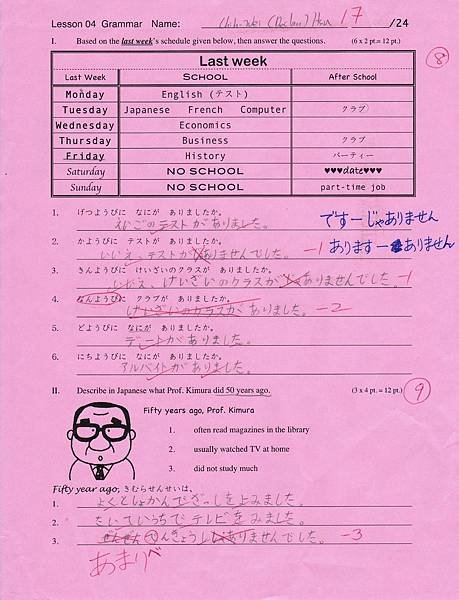 Lesson 04 Grammar Name: 17 /24
I. Based on the last week's schedule given below, then answer the questions. (6 x 2 pt.= 12 pt.)
8
Last week
Last Week SCHOOL After School
Monday English (テスト)
Tuesday Japanese French Computer クラブ
Wednesday Economics
Thursday Business クラブ
Friday History パーティー
Saturday NO SCHOOL ♥♥♥date♥♥♥
Sunday NO SCHOOL part-time job
1. げつようびに なにが ありましたか。
えいごのテストがありました。
ですーじゃありません
2. かようびに テストが ありましたか。
いいえ、テストがありませんでした。 -1
ありますーありません
3. きんようびに けいざいのクラスが ありましたか。
いいえ、けいざいのクラスがありませんでした。 -1
4. なんようびに クラブが ありましたか。
けいざいのクラスがありました。 -2
5. どようびに なにが ありましたか。
デートがありました。
6. にちようびに なにが ありましたか。
アルバイトがありました。
II. Describe in Japanese what Prof. Kimura did 50 years ago. (3 x 4 pt. = 12 pt.)
9
Fifty years ago, Prof. Kimura
1. often read magazines in the library
2. usually watched TV at home
3. did not study much
Fifty year ago, きむらせんせいは、
1. よくとしょかんでざっしをよみました。
2. たいていうちでテレビをみました。
3. ぜんぜんべんきょうしありませんでした。 -3
あまり べ